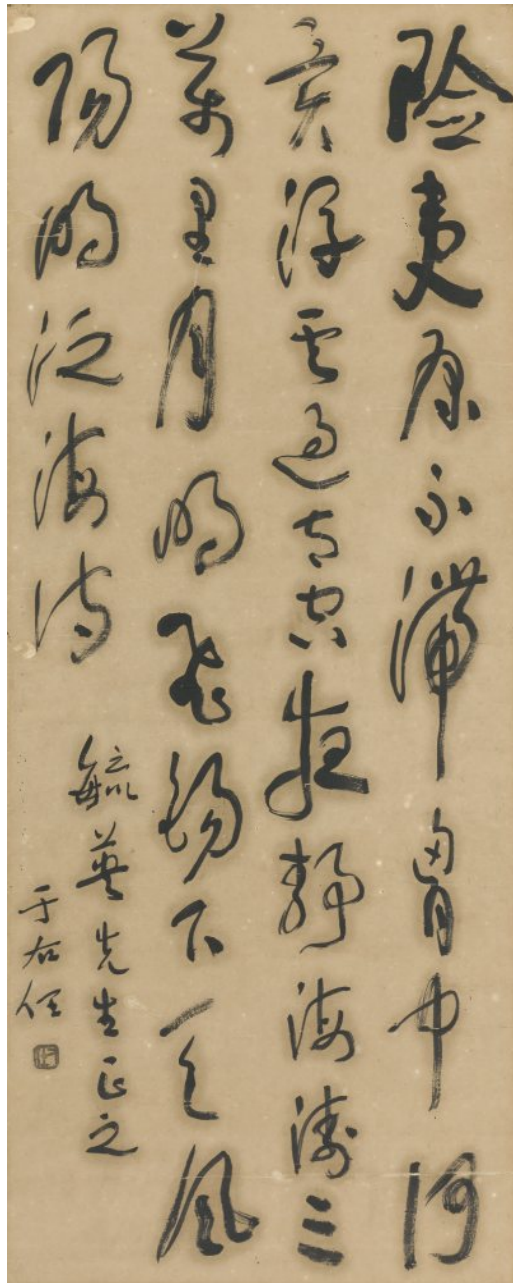 险夷原不滞胸中何
異浮云過太空夜静海涛三
萬里月明飛錫下天風
陽明泛海詩
毓英先生正之
于右任